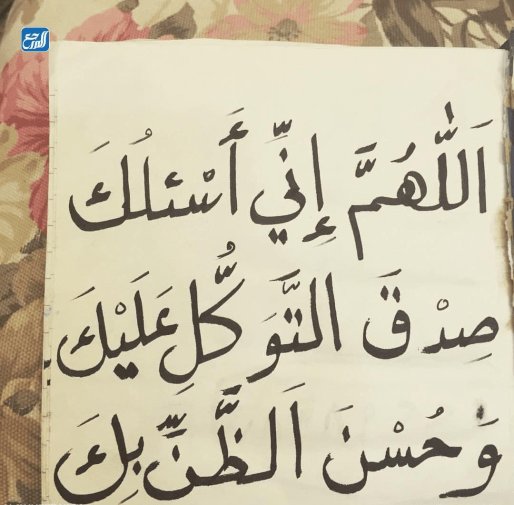 المرجع
اَللّٰهُمَّ إِنِّي أَسْئلُكَ
صِدْقَ التَّوَكُّلِ عَلَيْكَ
وَحُسْنَ اَلظَّنِّ بِكَ